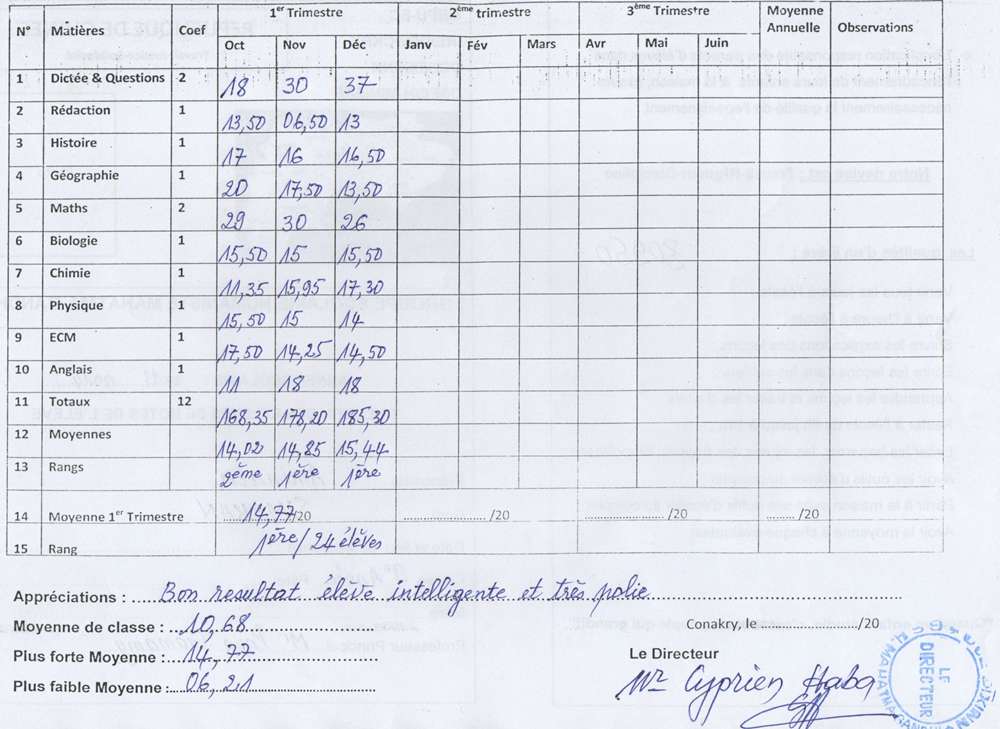 N° Matières Coef 1er Trimestre 2ème trimestre 3ème Trimestre Moyenne Annuelle Observations
Oct Nov Déc Janv Fév Mars Avr Mai Juin
1 Dictée & Questions 2 18 30 37
2 Rédaction 1 13,50 06,50 13
3 Histoire 1 17 16 16,50
4 Géographie 1 20 17,50 13,50
5 Maths 2 29 30 26
6 Biologie 1 15,50 15 15,50
7 Chimie 1 11,35 15,95 17,30
8 Physique 1 15,50 15 14
9 ECM 1 17,50 14,25 14,50
10 Anglais 1 11 18 18
11 Totaux 12 168,35 178,20 185,30
12 Moyennes 14,02 14,85 15,44
13 Rangs 2ème 1ère 1ère
14 Moyenne 1er Trimestre 14,77/20 /20 /20
15 Rang 1ère / 24 élèves
Appréciations : Bon resultat élève intelligente et très polie
Moyenne de classe : 10,68
Conakry, le /20
Plus forte Moyenne : 14,77
Le Directeur
Plus faible Moyenne : 06,21
Mr Cyprien Haba
LE DIRECTEUR